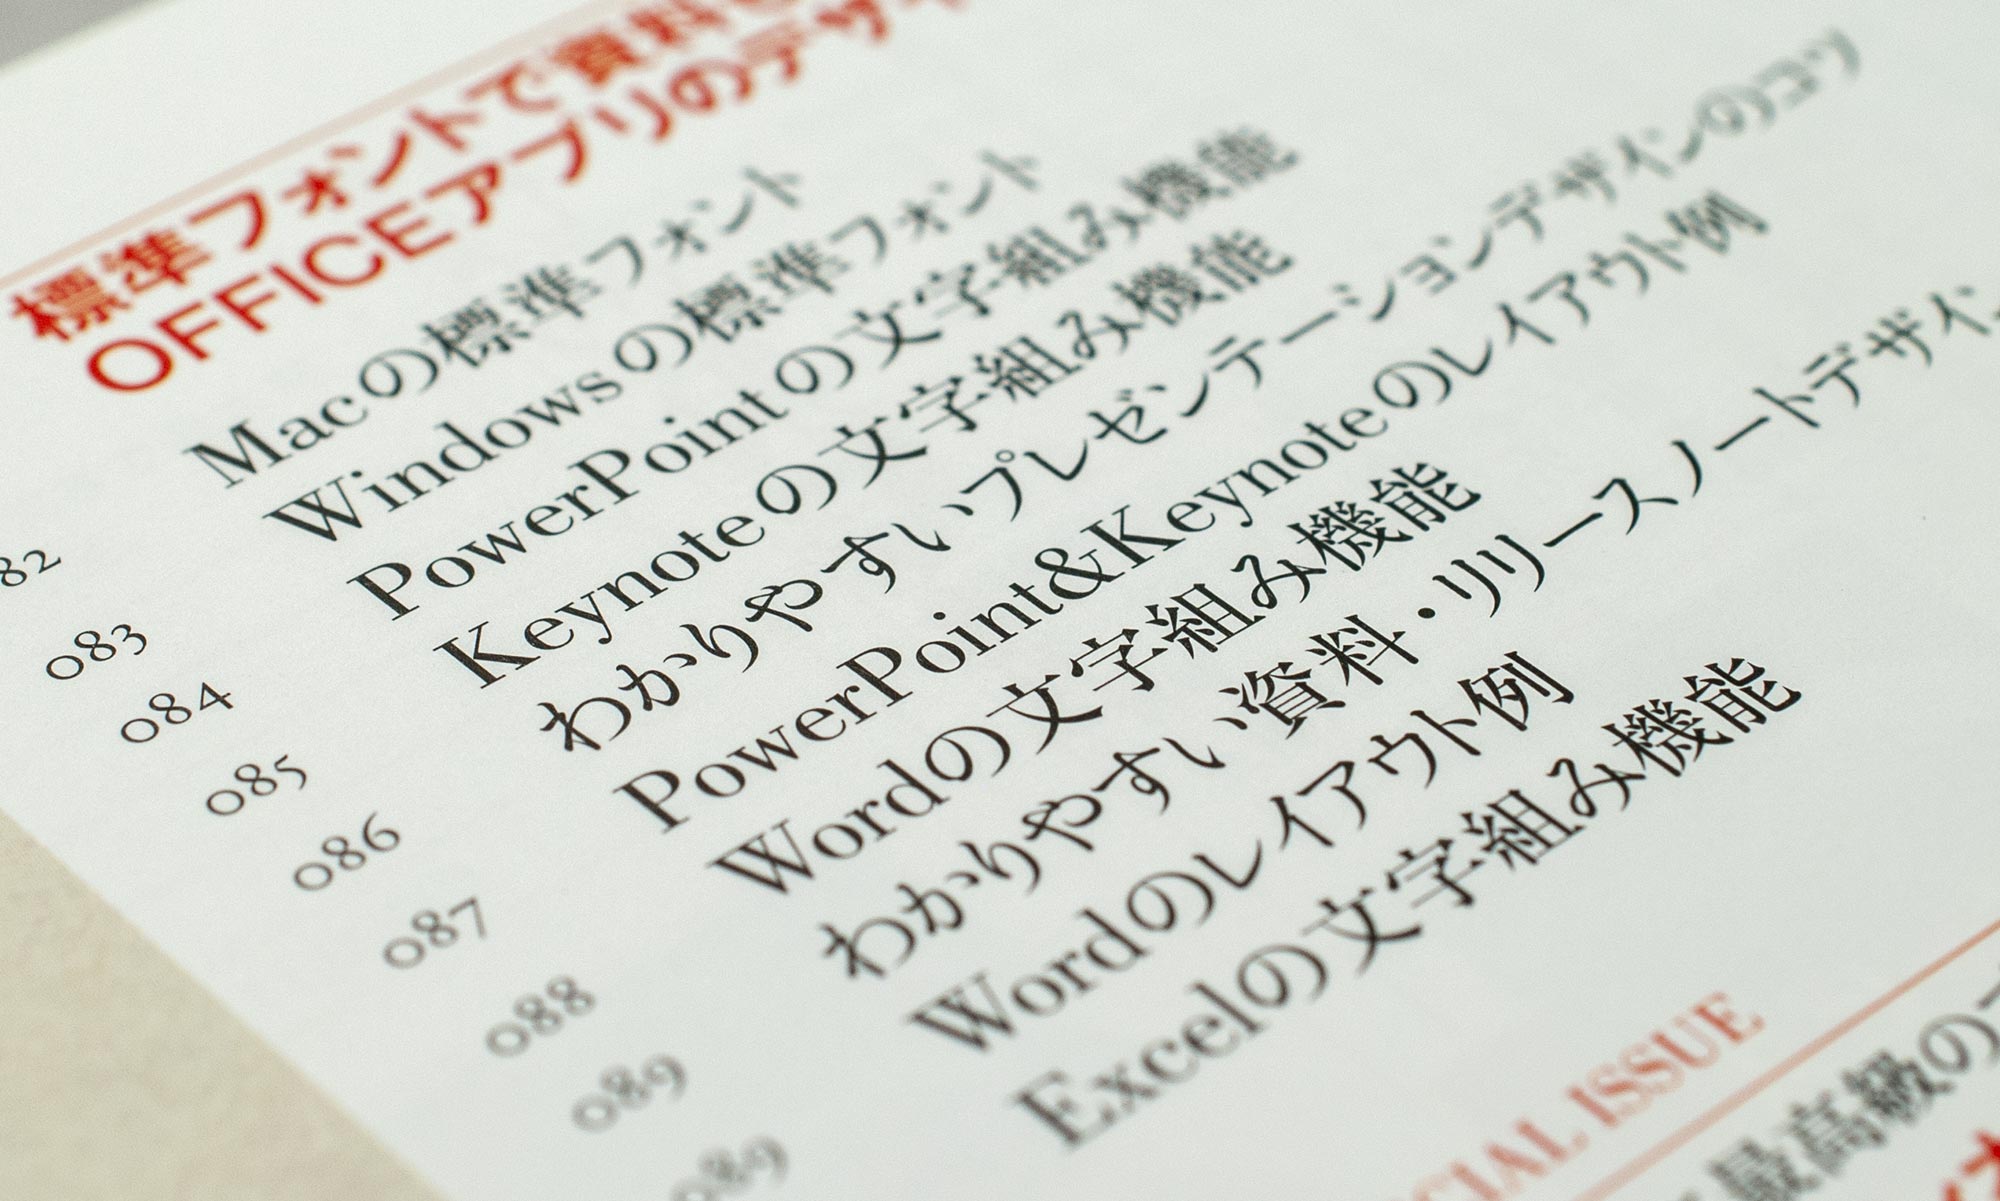 標準フォントで資料
OFFICEアプリのデザ
Macの標準フォント
082 Windowsの標準フォント
083 PowerPointの文字組み機能
084 Keynoteの文字組み機能
085 わかりやすいプレゼンテーションデザインのコツ
086 PowerPoint&Keynoteのレイアウト例
087 Wordの文字組み機能
088 わかりやすい資料・リリースノートデザイン
089 Wordのレイアウト例
089 Excelの文字組み機能
CIAL ISSUE
最高級の